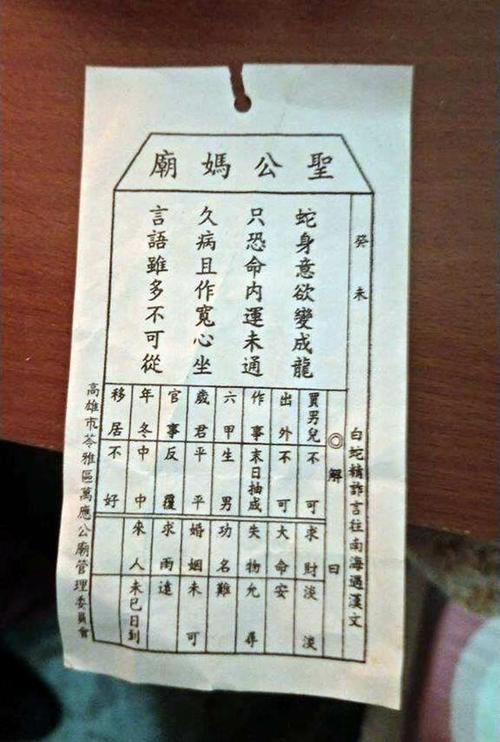 聖公媽廟
癸未
白蛇精詐言往南海遇漢文
蛇身意欲變成龍
只恐命內運未通
久病且作寬心坐
言語雖多不可從
◎解曰
買男兒不可
出外不可
作事末日抽成
六甲生男
歲君平平
官事反覆
年冬中中
移居不好
求財淡淡
大命安
失物允尋
功名難
婚姻未可
求雨遠
來人未巳日到
高雄市苓雅區萬應公廟管理委員會